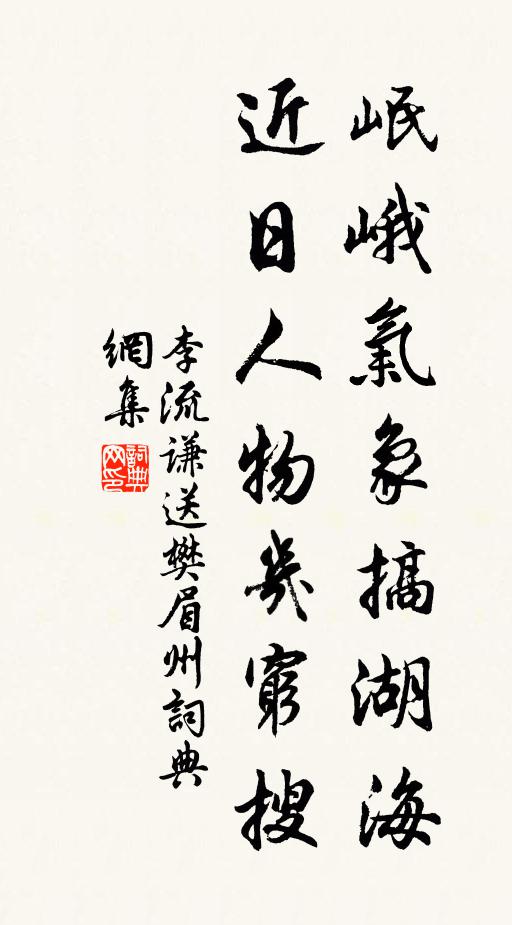 岷峨氣象搞湖海
近日人物幾窮搜
李流謙送樊眉州詞典
網集
詞典網印